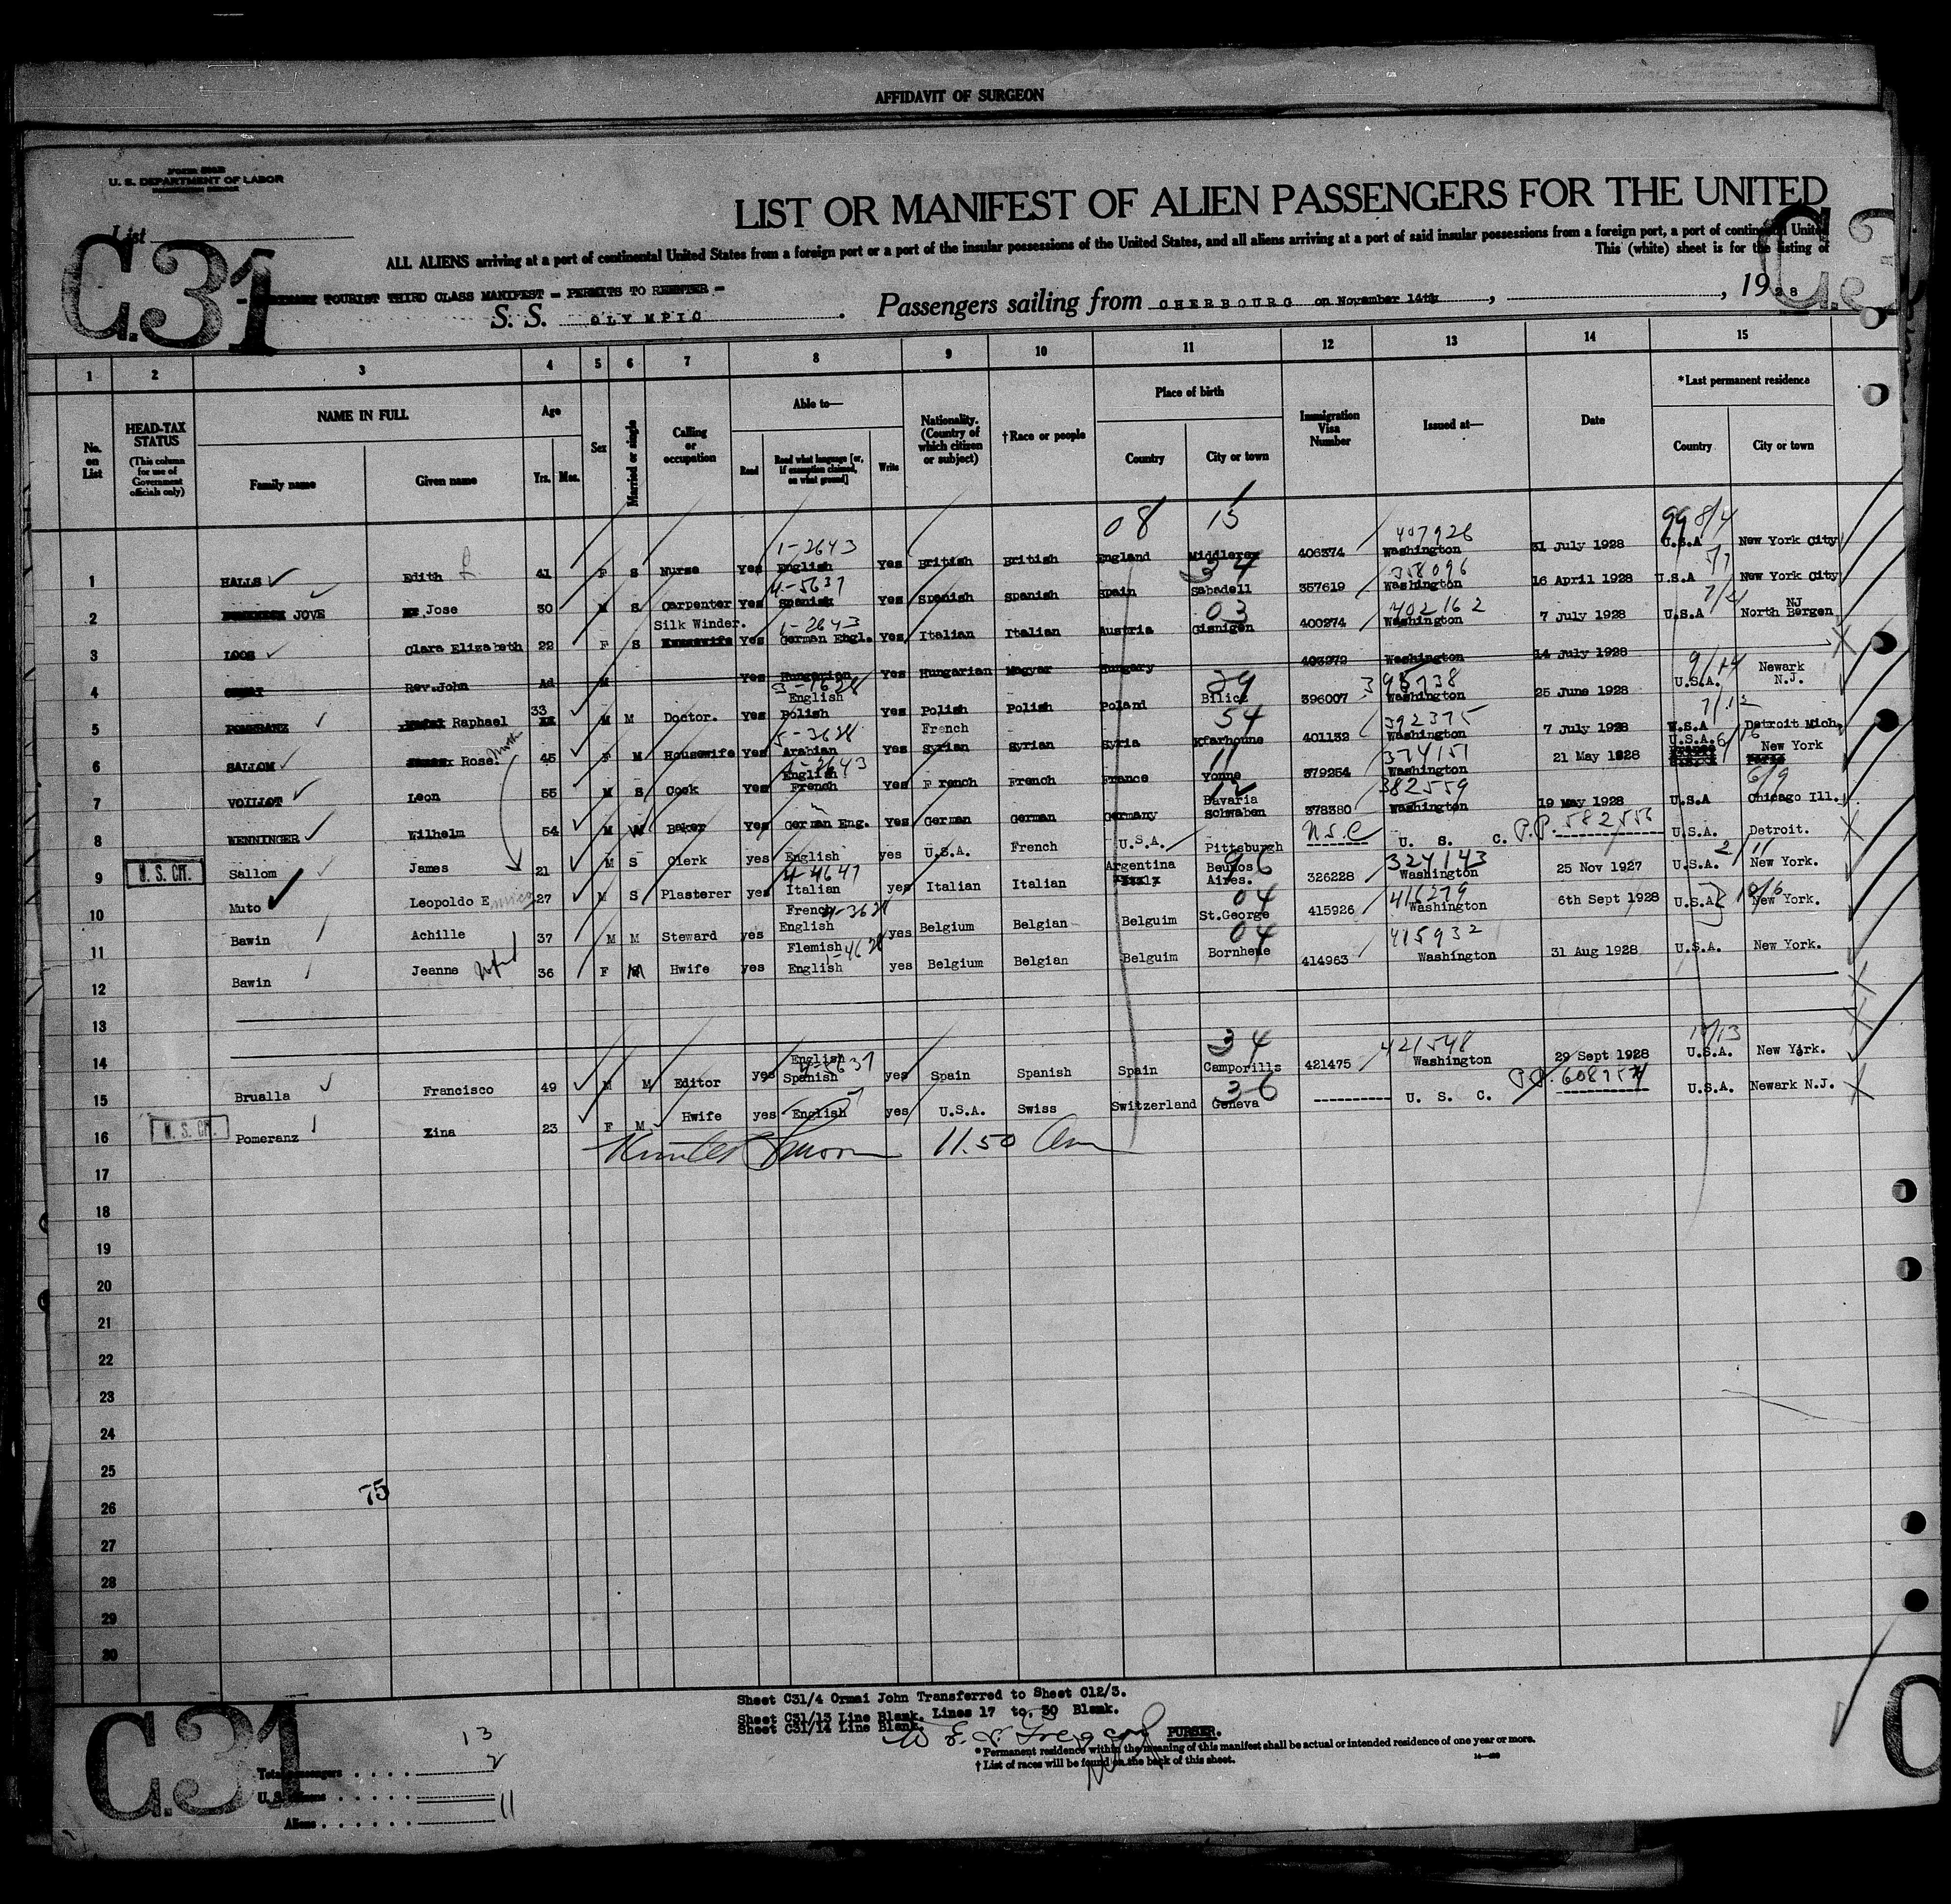 AFFIDAVIT OF SURGEON
U. S. DEPARTMENT OF LABOR
LIST OR MANIFEST OF ALIEN PASSENGERS FOR THE UNITED
List
C.31
ALL ALIENS arriving at a port of continental United States from a foreign port or a port of the insular possessions of the United States, and all aliens arriving at a port of said insular possessions from a foreign port, a port of continental United
This (white) sheet is for the listing of
TOURIST THIRD CLASS MANIFEST - PERMITS TO REENTER -
S. S. OLYMPIC. Passengers sailing from CHERBOURG on November 14th, , 1928
1 2 3 4 5 6 7 8 9 10 11 12 13 14 15
No. on List
HEAD-TAX STATUS (This column for use of Government officials only)
NAME IN FULL Family name Given name
Age Yrs. Mos.
Sex
Married or single
Calling or occupation
Able to— Read Read what language [or, if exemption claimed, on what ground] Write
Nationality. (Country of which citizen or subject)
†Race or people
Place of birth Country City or town
Immigration Visa Number
Issued at—
Date
*Last permanent residence Country City or town
08 15 407926 99 8/4
1 HALLS Edith 41 F S Nurse Yes 1-2643 English Yes British British England Middlesex 406374 Washington 31 July 1928 U.S.A New York City
2 JOVE Jose 30 M S Carpenter Yes 4-5637 Spanish Yes Spanish Spanish Spain 34 Sabadell 357619 358096 Washington 16 April 1928 U.S.A 5/7 New York City
3 LOOS Clara Elizabeth 22 F S Silk Winder. Housewife Yes 1-2643 German Engl. Yes Italian Italian Austria 03 Gisnigen 400274 402162 Washington 7 July 1928 U.S.A North Bergen NJ
4 Rev.John Ad M Yes Hungarian Yes Hungarian Magyar Hungary 403272 Washington 14 July 1928
5 POMERANZ Raphael 33 M M Doctor. Yes English Polish Yes Polish Polish Poland 29 Bilice 396007 395738 Washington 25 June 1928 U.S.A. 9/14 Newark N.J.
6 SALLOM Rose. 45 F M Housewife Yes 5-3628 Arabian Yes French Syrian Syrian Syria 54 Kfarhoune 401132 392375 Washington 7 July 1928 U.S.A 7/12 Detroit Mich.
7 VOILLOT Leon 55 M S Cook Yes English French Yes French French France 11 Yonne 379254 374151 Washington 21 May 1928 U.S.A. New York
8 WENNINGER Wilhelm 54 M Baker Yes German Eng. Yes German German Germany 12 Bavaria Schwaben 378380 382559 Washington 19 May 1928 U.S.A 6/9 Chicago Ill.
9 U. S. CIT. Sallom James 21 M S Clerk yes English yes U.S.A. French U.S.A. Pittsburgh U.S.C U. S. C. P.P. 582556 U.S.A. Detroit.
10 Muto Leopoldo E 27 M S Plasterer yes 4-4647 Italian yes Italian Italian Argentina 96 Beunos Aires. 326228 324143 Washington 25 Nov 1927 U.S.A. 2/11 New York.
11 Bawin Achille 37 M M Steward yes French English yes Belgium Belgian Belguim 04 St.George 415926 416279 Washington 6th Sept 1928 U.S.A New York.
12 Bawin Jeanne 36 F M Hwife yes Flemish English yes Belgium Belgian Belguim 04 Bornheme 414963 415932 Washington 31 Aug 1928 U.S.A. New York.
13
14
15 Brualla Francisco 49 M M Editor yes English Spanish yes Spain Spanish Spain 34 Camporills 421475 421548 Washington 29 Sept 1928 U.S.A. 10/13 New York.
16 U. S. CIT. Pomeranz Zina 23 F M Hwife yes English yes U.S.A. Swiss Switzerland 36 Geneva U. S. C. P.P. U.S.A. Newark N.J.
11.50
17
18
19
20
21
22
23
24
25
26
27
28
29
30
75
Sheet C31/4 Ormai John Transferred to Sheet C12/3.
Sheet C31/13 Line Blank. Lines 17 to. 30 Blank.
Sheet C31/14 Line Blank.
PURSER.
* Permanent residence within the meaning of this manifest shall be actual or intended residence of one year or more.
† List of races will be found on the back of this sheet.
C.31
Total passengers 13
U. S. citizens 2
Aliens 11